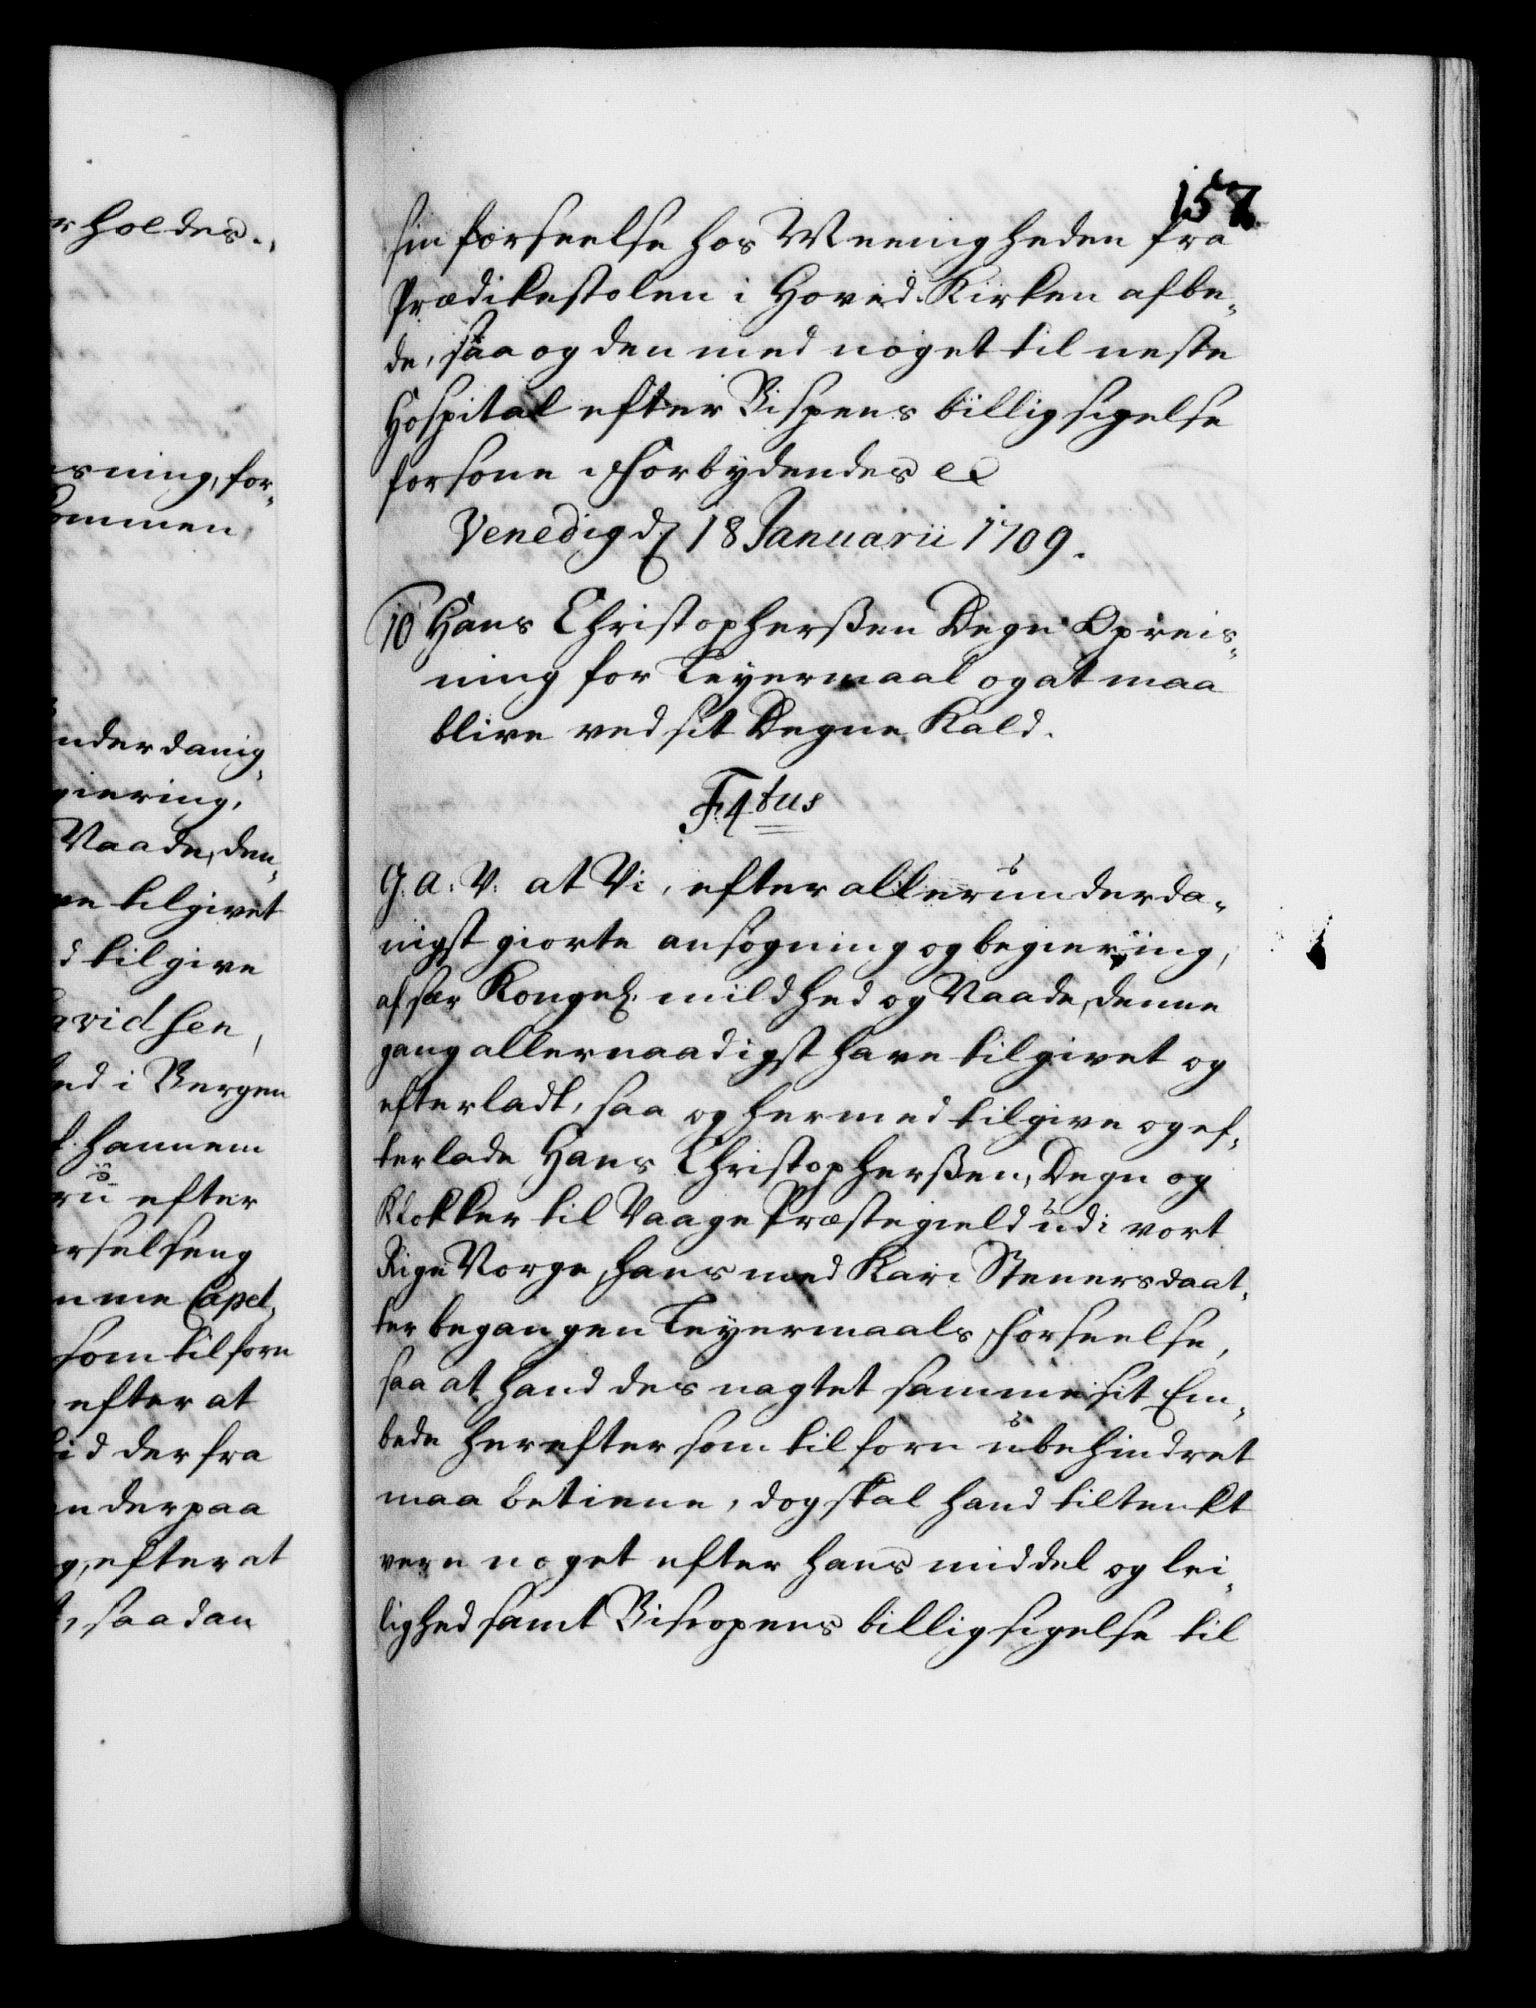 r holdes.,
esning, for¬
ommen
nderdanig¬
giering,
Naade, den¬
ve tilgivet
d tilgive
avidsen,
ed i Bergen
t. hannem
ru efter
erselseng
nme Capel¬
som tilforn
efter at
tid derfra
n derpaa
g, efter at
t, saadan
157.
sin forseelse hos Meenigheden fra
Prædikestolen i Hoved-Kirken afbe¬
de, saa og den med noget til neste
Hospital efter Bispens billig sigelse
forsone. Forbydendes etc
Venedig d. 18 Januarii 1709.
10 Hans Christopherßen Degn Opreis¬
ning for Leyermaal og at maa
blive ved sit Degne Kald.
F. 4tus
G. A. V. at Vi, efter allerunderda¬
nigst giorte ansøgning og begiering,
af sær Kongel. mildhed og Naade, denne
gang allernaadigst have tilgivet og
efterladt, saa og hermed tilgive og ef¬
terlade Hans Christopherßen, Degn og
Klokker til Vaage Præstegield udi vort
Rige Norge, hans med Kari Stenersdaat¬
ter begangen Leyermaals Forseelse,
saa at hand des uagtet samme sit Em¬
bede herefter som tilforn ubehindret
maa betiene, dog skal hand tiltenkt
vere noget efter hans middel og lei¬
lighed samt Biscopens billig sigelse til